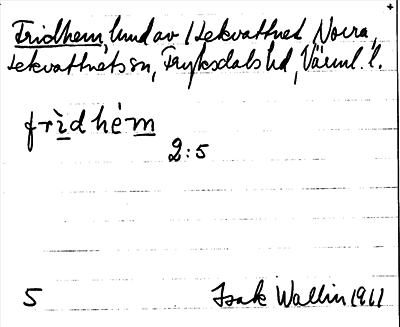 Fridhem, lund av 1 Lekvattnet Norra,
Lekvattnets sn, Fryksdals hd, Värml. l.
frìdhém
2:5
5
Isak Wallin 1961